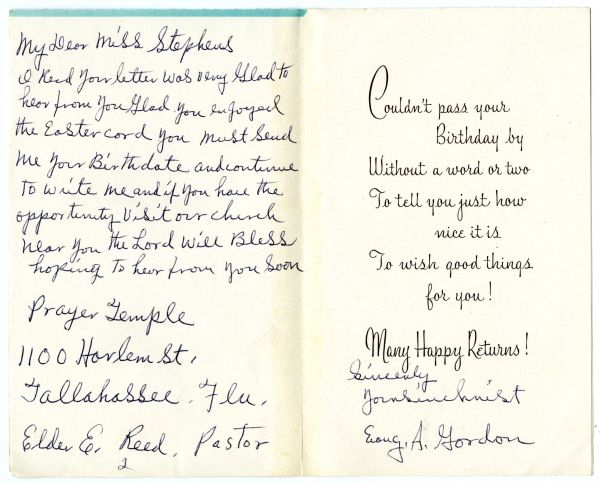 My Dear Miss Stephens
I Recd Your letter was very Glad to
hear from You Glad you enjoyed
the Easter card You must send
me Your Birthdate and continue
To write me and if you have the
opportunity Visit our church
near You the Lord Will Bless
hoping To hear from you Soon
Prayer Temple
1100 Harlem St.
Tallahassee. Fla.
Elder E. Reed, Pastor
2
Couldn't pass your
Birthday by
Without a word or two
To tell you just how
nice it is
To wish good things
for you!
Many Happy Returns!
Sincerely
Yours in Christ
Evang. A. Gordon